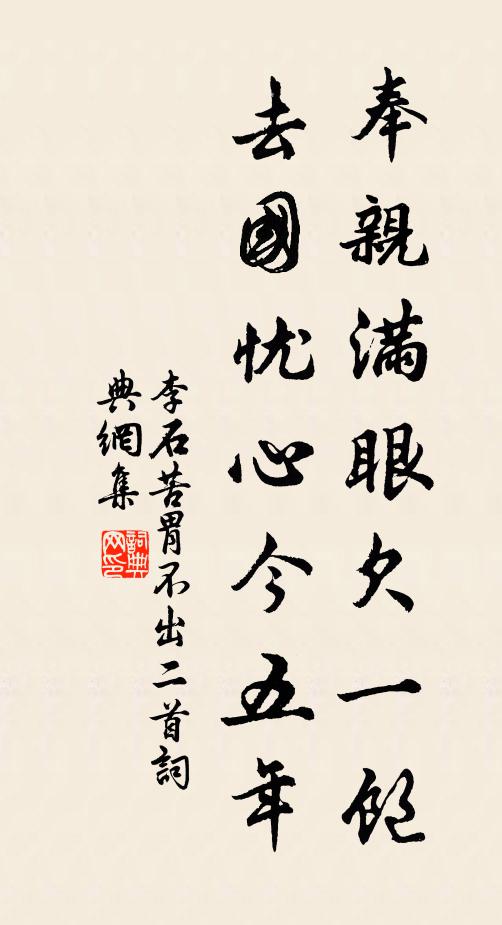 奉親滿眼欠一飽
去國忧心今五年
李石苦胃不出二首詞
典網集
詞典网印